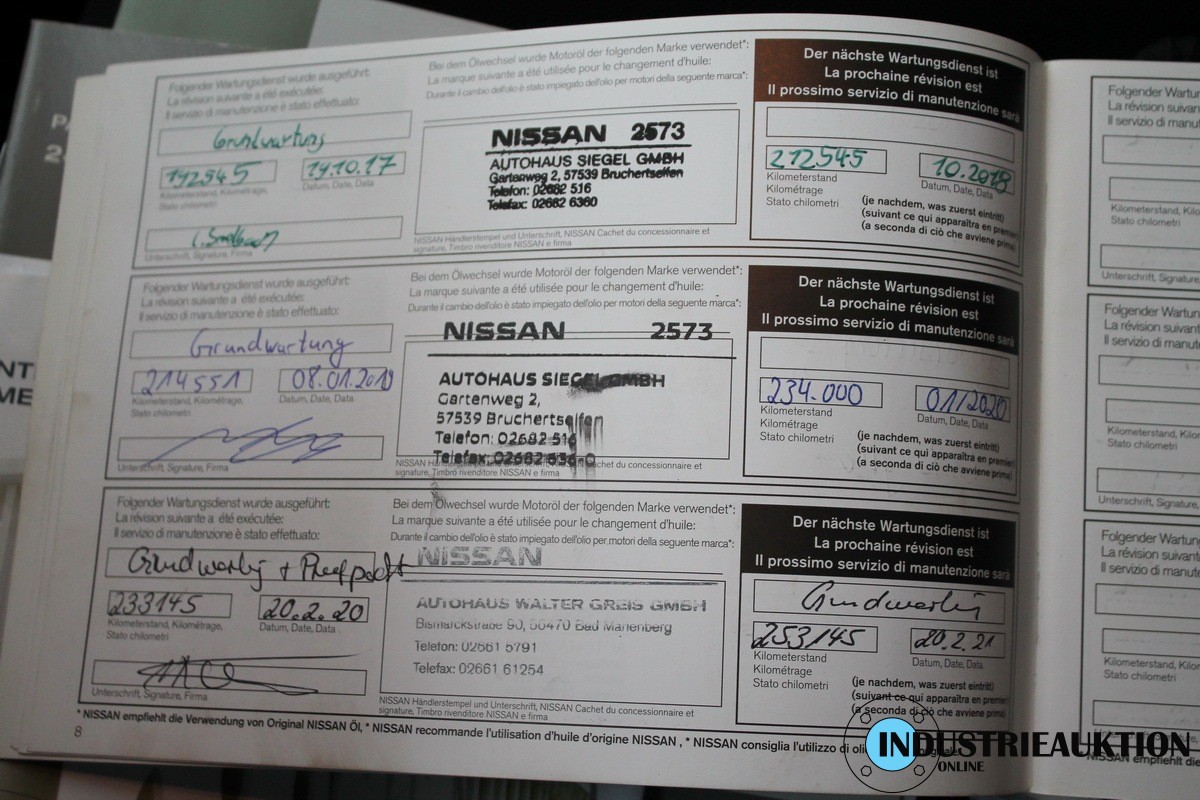 Folgender Wartungsdienst wurde ausgeführt:
La révision suivante a été exécutée:
Il servizio di manutenzione è stato effettuato:
Grundwartung
192545
14.10.17
Kilometerstand, Kilométrage,
Stato chilometri
Datum, Date, Data
Unterschrift, Signature, Firma
Bei dem Ölwechsel wurde Motoröl der folgenden Marke verwendet*:
La marque suivante a été utilisée pour le changement d'huile:
Durante il cambio dell'olio è stato impiegato dell'olio per motori della seguente marca*:
NISSAN 2573
AUTOHAUS SIEGEL GMBH
Gartenweg 2, 57539 Bruchertseifen
Telefon: 02682 516
Telefax: 02682 6360
NISSAN Händlerstempel und Unterschrift, NISSAN Cachet du concessionnaire et
signature, Timbro rivenditore NISSAN e firma
Der nächste Wartungsdienst ist
La prochaine révision est
Il prossimo servizio di manutenzione sarà
212545
10.2018
Kilometerstand
Kilométrage
Stato chilometri
Datum, Date, Data
(je nachdem, was zuerst eintritt)
(suivant ce qui apparaîtra en premier)
(a seconda di ciò che avviene prima)
Folgender Wartungsdienst wurde ausgeführt:
La révision suivante a été exécutée:
Il servizio di manutenzione è stato effettuato:
Grundwartung
214551
08.01.2019
Kilometerstand, Kilométrage,
Stato chilometri
Datum, Date, Data
Unterschrift, Signature, Firma
Bei dem Ölwechsel wurde Motoröl der folgenden Marke verwendet*:
La marque suivante a été utilisée pour le changement d'huile:
Durante il cambio dell'olio è stato impiegato dell'olio per motori della seguente marca*:
NISSAN 2573
AUTOHAUS SIEGEL GMBH
Gartenweg 2,
57539 Bruchertseifen
Telefon: 02682 516
Telefax: 02682 636-0
NISSAN Cachet du concessionnaire et
signature, Timbro rivenditore NISSAN e firma
Der nächste Wartungsdienst ist
La prochaine révision est
Il prossimo servizio di manutenzione sarà
234.000
01/2020
Kilometerstand
Kilométrage
Stato chilometri
Datum, Date, Data
(je nachdem, was zuerst eintritt)
(suivant ce qui apparaîtra en premier)
(a seconda di ciò che avviene prima)
Folgender Wartungsdienst wurde ausgeführt:
La révision suivante a été exécutée:
Il servizio di manutenzione è stato effettuato:
Grundwartung +
233145
20.2.20
Kilometerstand, Kilométrage,
Stato chilometri
Datum, Date, Data
Unterschrift, Signature, Firma
Bei dem Ölwechsel wurde Motoröl der folgenden Marke verwendet*:
La marque suivante a été utilisée pour le changement d'huile:
Durante il cambio dell'olio è stato impiegato dell'olio per motori della seguente marca*:
NISSAN
AUTOHAUS WALTER GREIS GMBH
Bismarckstraße 90, 56470 Bad Marienberg
Telefon: 02661 5791
Telefax: 02661 61254
NISSAN Händlerstempel und Unterschrift, NISSAN Cachet du concessionnaire et
signature, Timbro rivenditore NISSAN e firma
Der nächste Wartungsdienst ist
La prochaine révision est
Il prossimo servizio di manutenzione sarà
Grundwartung
253145
20.2.21
Kilometerstand
Kilométrage
Stato chilometri
Datum, Date, Data
(je nachdem, was zuerst eintritt)
(suivant ce qui apparaîtra en premier)
(a seconda di ciò che avviene prima)
* NISSAN empfiehlt die Verwendung von Original NISSAN Öl, * NISSAN recommande l'utilisation d'huile d'origine NISSAN, * NISSAN consiglia l'utilizzo di
8
Folgender
La révision suivante
Il servizio di
Kilometerstand, Kil
Stato chilometri
Unterschrift, Signatur
Folgender
La révision suivante
Il servizio di
Kilometerstand, Kil
Stato chilometri
Unterschrift, Signature
Folgender
La révision
Il servizio di
Kilometerstand, Kil
Stato chilometri
INDUSTRIEAUKTION
ONLINE